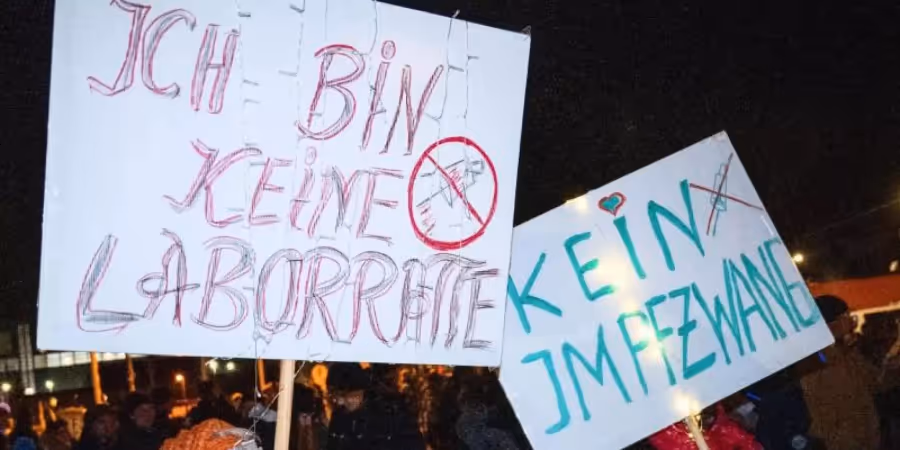 ICH BiN
KEiNE
LABORRATTE
KEiN
IMPFZWANG